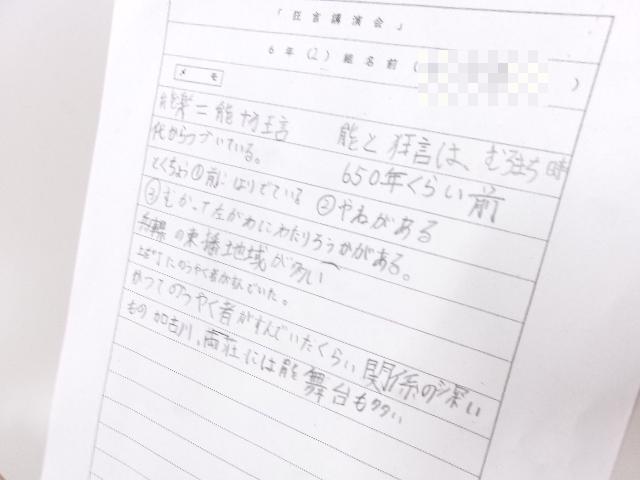 「狂言講演会」
6年(2)組名前(      )
メモ
能楽=能 狂言 能と狂言は、むろまち時
代からつづいている。 650年くらい前
とくちょう①前にはりでている ②やねがある
③むかって左がわにわたりろうかがある。
の東播地域が多い
城下にのうやく者が住んでいた。
かつてのうやく者がすんでいたくらい関係の深い
もの 加古川、両荘には能舞台も多い